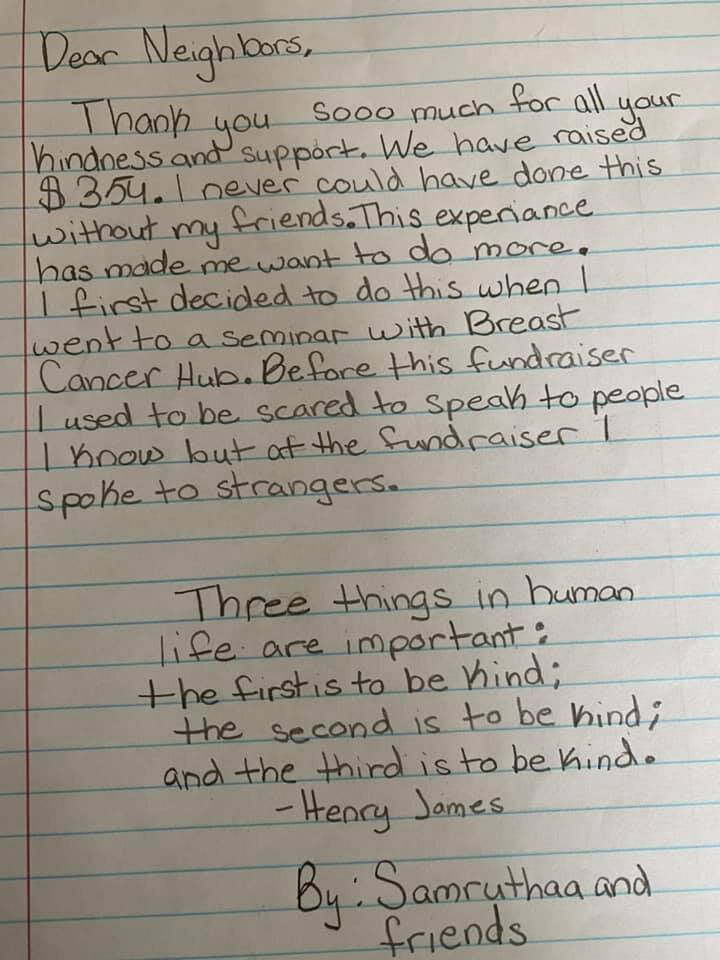 Dear Neighbors,
Thank you sooo much for all your
kindness and support. We have raised
$354. I never could have done this
without my friends. This experiance
has made me want to do more.
I first decided to do this when I
went to a seminar with Breast
Cancer Hub. Before this fundraiser
I used to be scared to speak to people
I know but at the fundraiser I
spoke to strangers.
Three things in human
life are important:
the first is to be kind;
the second is to be kind;
and the third is to be kind.
-Henry James
By: Samruthaa and
friends